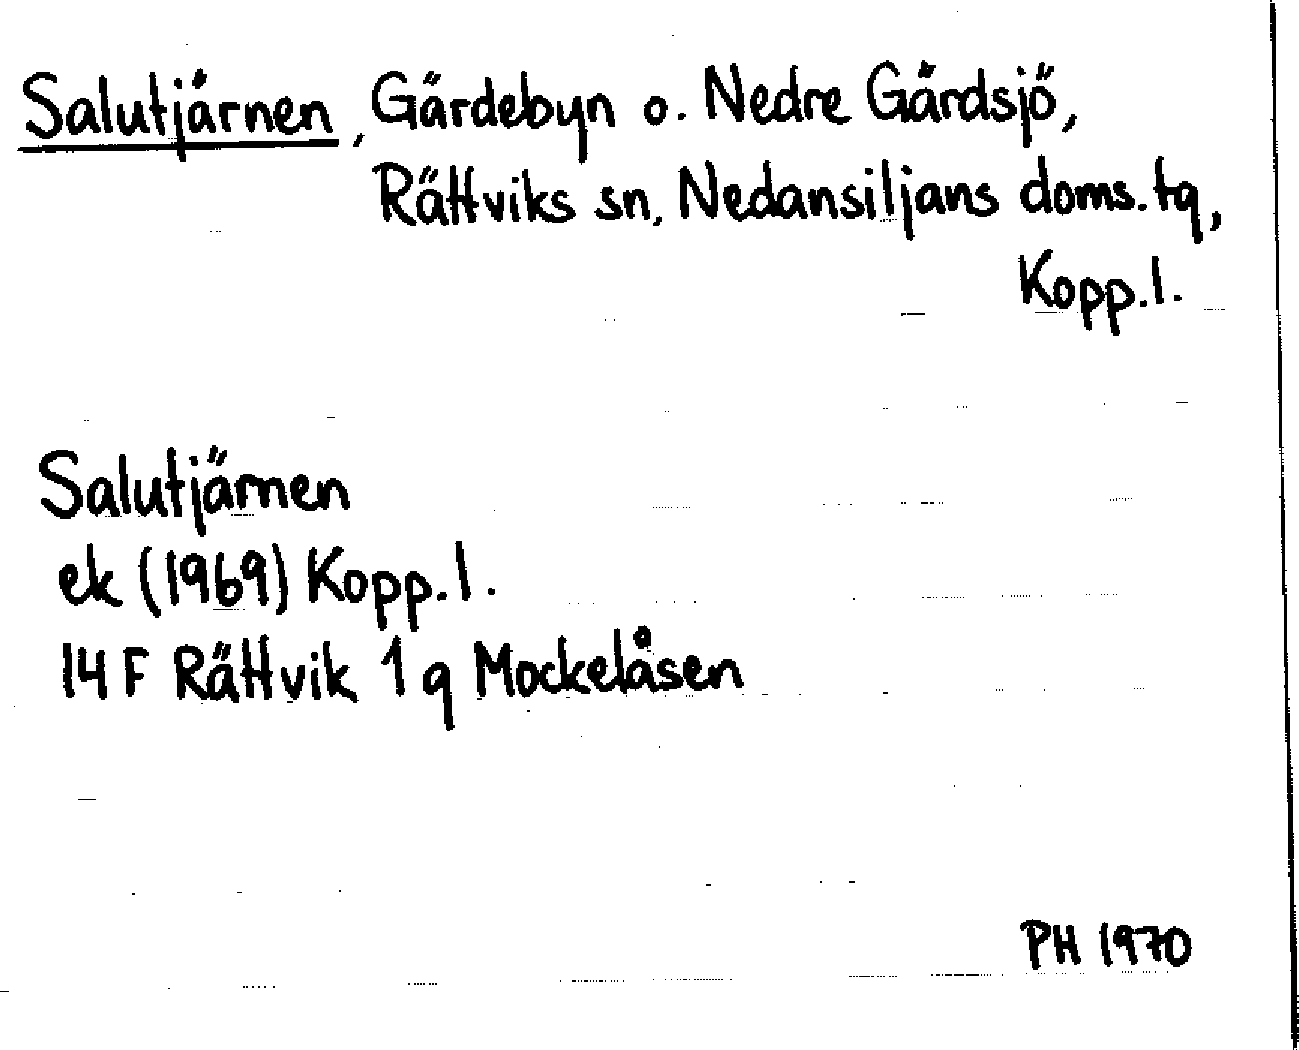 Salutjärnen, Gärdebyn o. Nedre Gärdsjö,
Rättviks sn, Nedansiljans doms.tg,
Kopp.l.
Salutjärnen
ek (1969) Kopp.l.
14 F Rättvik 1 g Mockelåsen
PH 1970